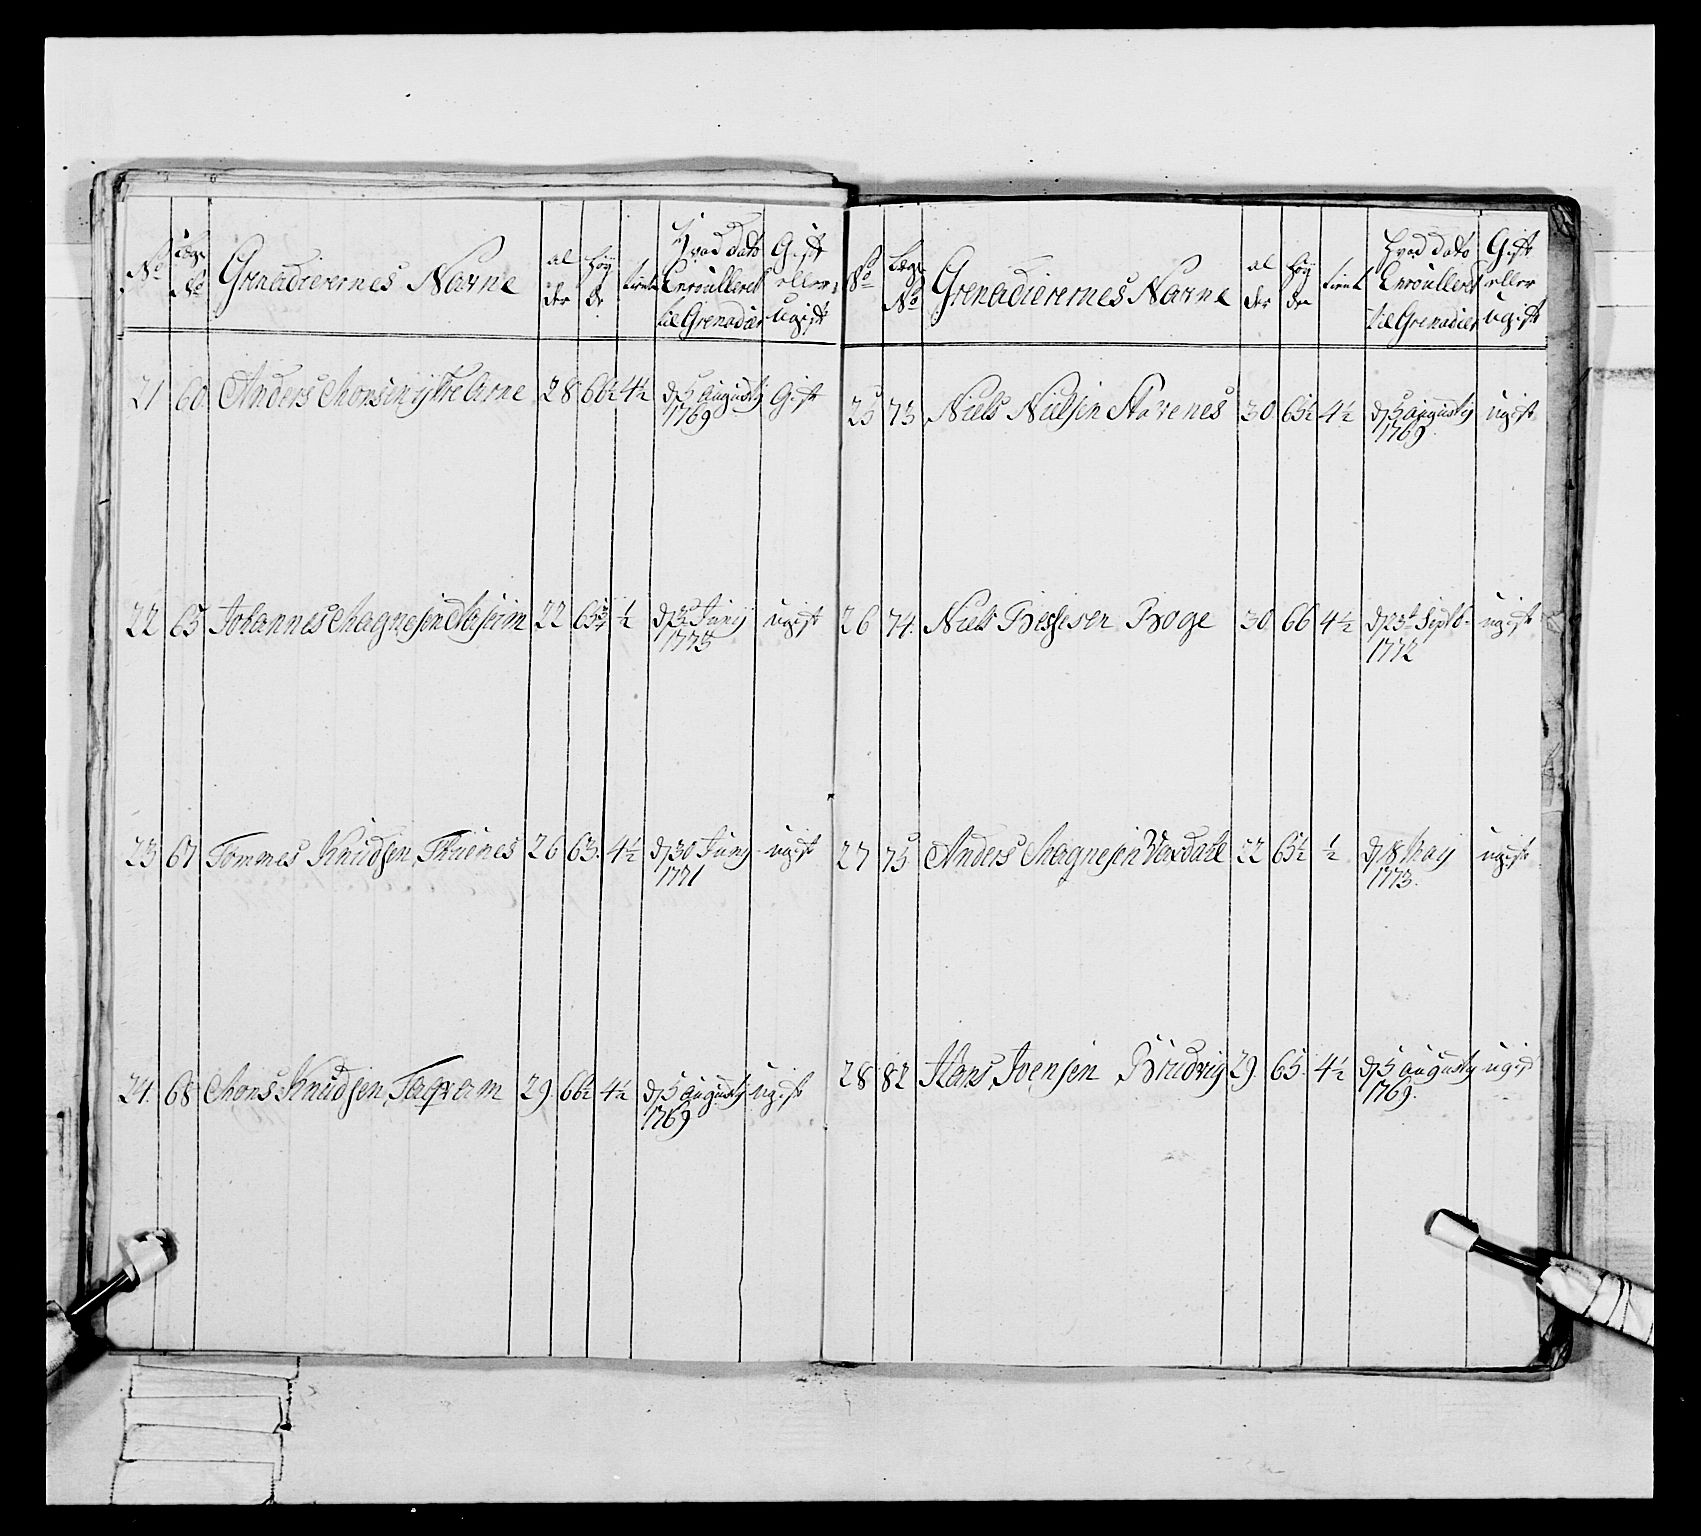 No
Lægs No
Grenadierernes Navne
al der
Høy de
tient
Hvad dato Enroulleret til Grenadier
Gift eller ugift
21 60 Anders Monsen ytre Arne 28 66½ 4½ d 5 augusty 1769 Gift
22 65 Johannes Magnesen 22 65¾ ½ d 23 Juny 1773 ugift
23 67 Tommes Knudsen Thuenes 26 63. 4½ d 30 Juny 1771 ugift
24. 68 Mons Knudsen Fagram 29. 66½ 4½ d 5 augusty 1769 ugift
No
Lægs No
Grenadierernes Navne
al der
Høy de
tient
Hvad dato Enroulleret til Grenadier
Gift eller ugift
25 73 Niels Nielsen Starenes 30 65½ 4½ d 5 augusty 1769 ugift
26 74. Niels Boge 30 66 4½ d 23 Septb. 1772 ugift
27 75 Anders Magnesen Vaxdahl 22 65½ ½ d 18 May 1773. ugift
28 82 Hans Ivensen Brudvig 29. 65. 4½ d 5 augusty 1769. ugift